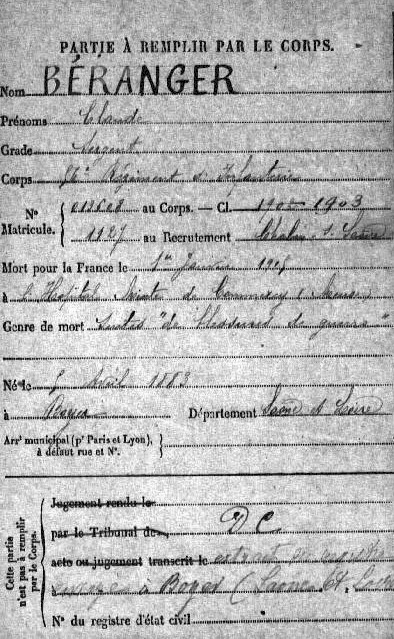 PARTIE À REMPLIR PAR LE CORPS.
Nom BÉRANGER
Prénoms Claude
Grade Sergent
Corps 56e Régiment d'Infanterie
N° Matricule. { 012608 au Corps. — Cl. 1903
1927 au Recrutement Chalon s. Saône
Mort pour la France le 1er Janvier 1915
à l'Hôpital Mixte de Commercy (Meuse)
Genre de mort Suites "de blessures de guerre"
Né le Avril 1883
à Boyer Département Saône et Loire
Arrt municipal (pr Paris et Lyon),
à défaut rue et N°.
Cette partie n'est pas à remplir par le Corps.
Jugement rendu le
par le Tribunal de D C
acte ou jugement transcrit le extrait de
à Boyer (Saône et Loire
N° du registre d'état civil